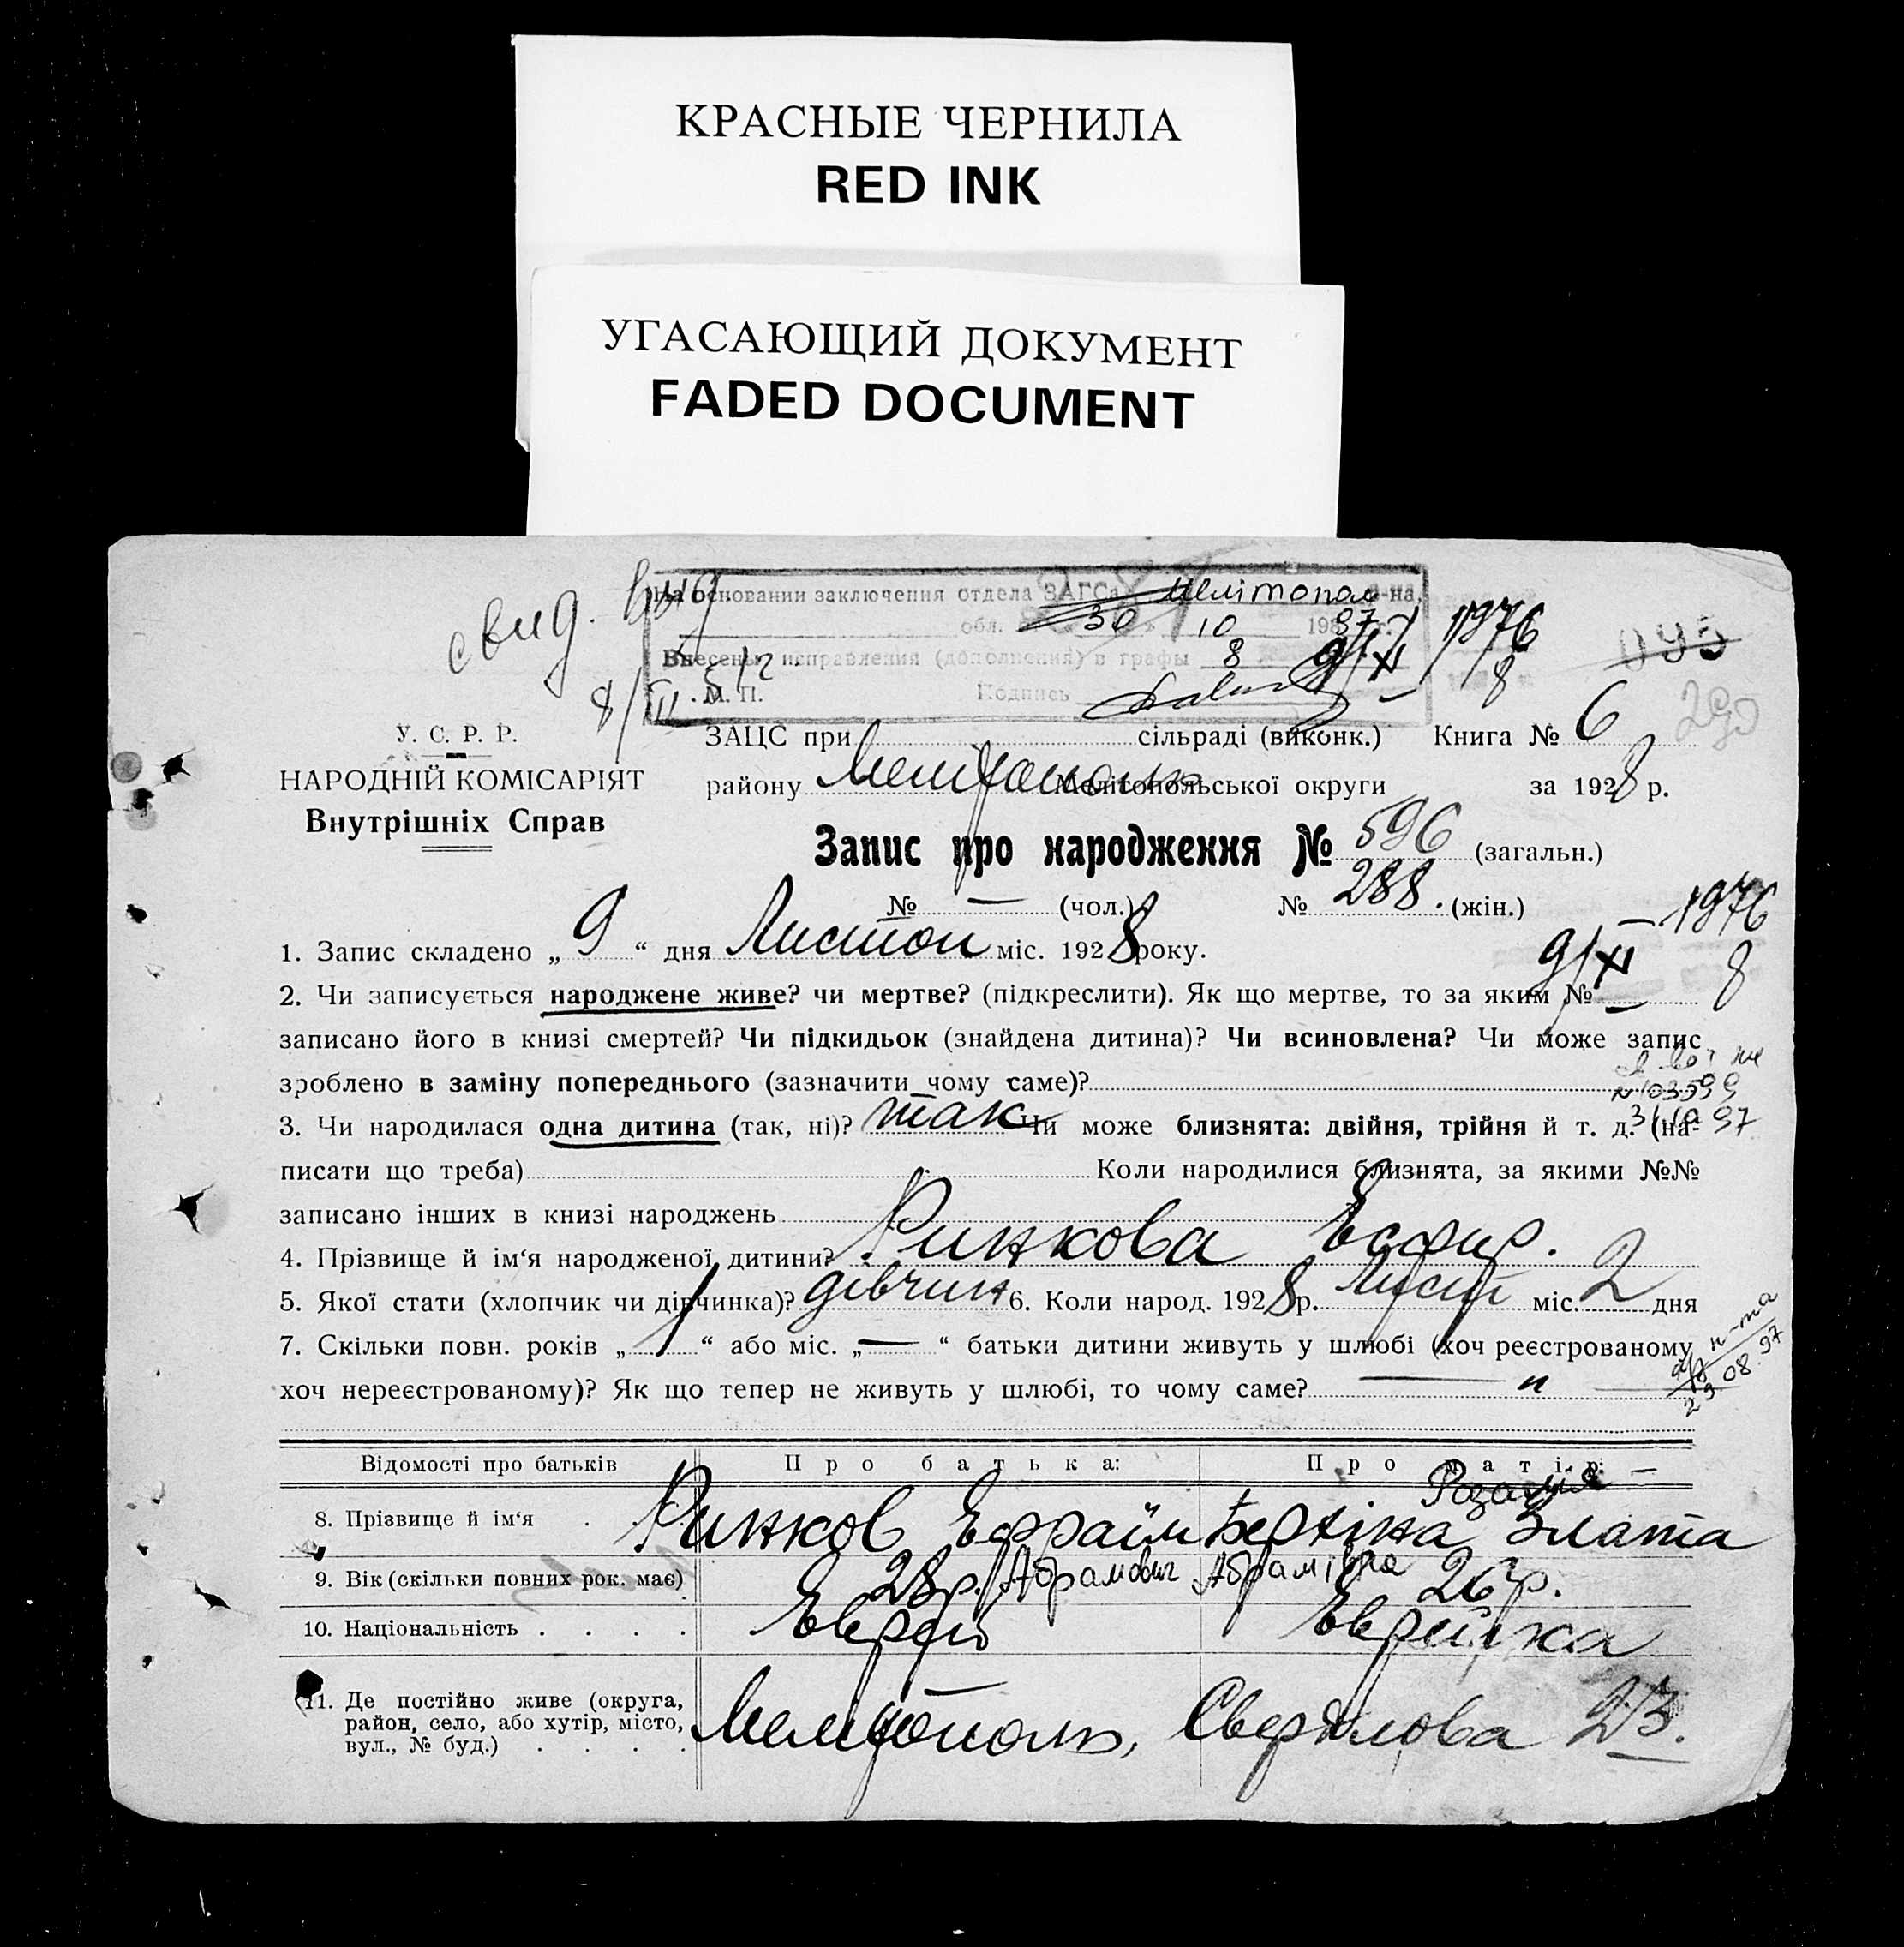 КРАСНЫЕ ЧЕРНИЛА
RED INK
УГАСАЮЩИЙ ДОКУМЕНТ
FADED DOCUMENT
свид.
На основании заключения отдела ЗАГСа Мелітопол р-на,
обл. 30 10 1987 г.
Внесены исправления (дополнения) в графы 8
М. П. Подпись
9/XI 1976
8
035
290
У. С. Р. Р.
НАРОДНІЙ КОМІСАРІЯТ
Внутрішніх Справ
ЗАЦС при сільраді (виконк.) Книга № 6
району Мелітополь Мелітопольської округи за 1928 р.
Запис про народження № 596 (загальн.)
№ — (чол.) № 288. (жін.)
9/XI — 1976
8
1. Запис складено „ 9 “ дня Листоп міс. 1928 року.
2. Чи записується народжене живе? чи мертве? (підкреслити). Як що мертве, то за яким №
записано його в книзі смертей? Чи підкидьок (знайдена дитина)? Чи всиновлена? Чи може запис
зроблено в заміну попереднього (зазначити чому саме)?
№ 103599
3. Чи народилася одна дитина (так, ні)? так Чи може близнята: двійня, трійня й т. д. (на-
писати що треба) Коли народилися близнята, за якими №№
записано інших в книзі народжень
4. Прізвище й ім‘я народженої дитини? Рижкова Есфир.
5. Якої стати (хлопчик чи дівчинка)? дівчин 6. Коли народ. 1928 р. Лист міс. 2 дня
7. Скільки повн. років „ 1 “ або міс. „ — “ батьки дитини живуть у шлюбі (хоч реєстрованому
хоч нереєстрованому)? Як що тепер не живуть у шлюбі, то чому саме? — „ —
29 08.97
Відомості про батьків Про батька: Про матір:
8. Прізвище й ім‘я Рижков Ефраїм Беркіна Злата
9. Вік (скільки повних рок. має) 28 р. Абрамович Абрамівна 26 р.
10. Національність Еврей Еврейка
11. Де постійно живе (округа,
район, село, або хутір, місто,
вул., № буд.)
Мелітополь, Свердлова 23.